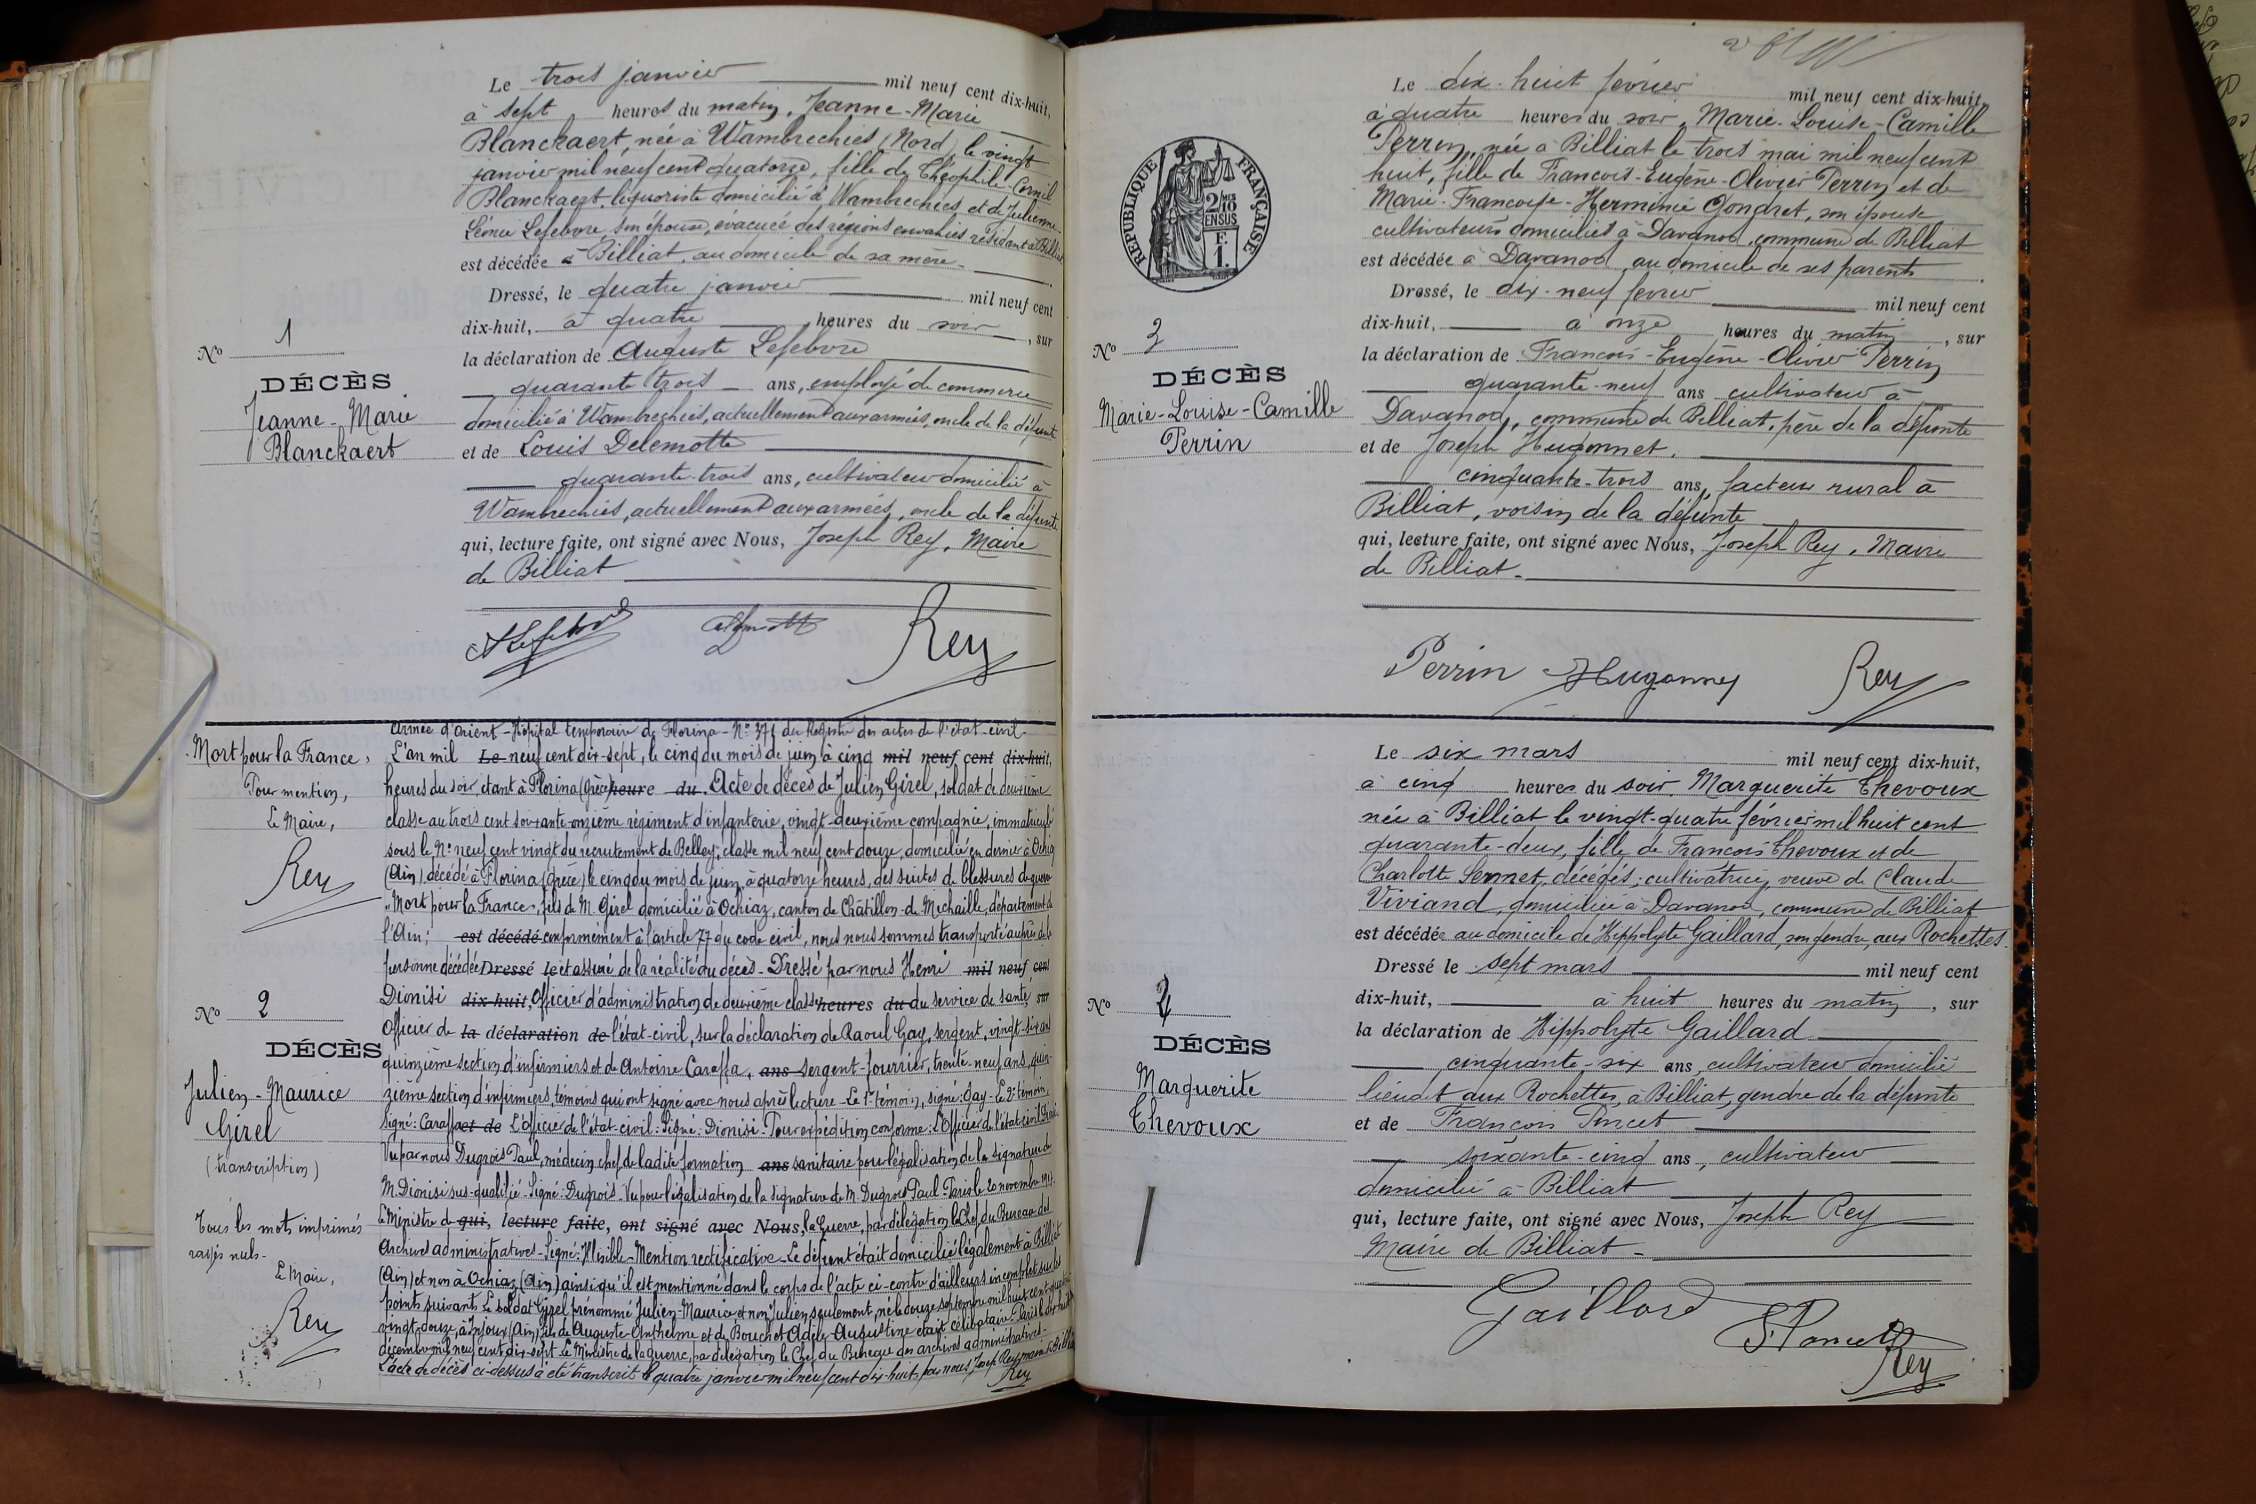 Le trois janvier mil neuf cent dix-huit,
à sept heures du matin, Jeanne-Marie
Blanckaert, née à Wambrechies (Nord) le vingt
janvier mil neuf cent quatorze, fille de Théophile-Cornil
Blanckaert, liquoriste domicilié à Wambrechies et de Julienne-
Léonie Lefebvre son épouse, évacuée des régions envahies résidant à Billiat
est décédée à Billiat, au domicile de sa mère.
Dressé, le quatre janvier mil neuf cent
dix-huit, à quatre heures du soir, sur
la déclaration de Auguste Lefebvre
quarante trois ans, employé de commerce
domicilié à Wambrechies, actuellement aux armées, oncle de la défunte
et de Louis Delemotte
quarante-trois ans, cultivateur domicilié à
Wambrechies, actuellement aux armées, oncle de la défunte
qui, lecture faite, ont signé avec Nous, Joseph Rey, Maire
de Billiat
Rey
No 1
DÉCÈS
Jeanne-Marie
Blanckaert
Mort pour la France,
Pour mention,
Le Maire,
Rey
No 2
DÉCÈS
Julien-Maurice
Girel
(transcription)
Tous les mots imprimés
rayés nuls.
Le Maire,
Rey
Armée d'Orient - Hôpital temporaire de Florina - No 371 du Registre des actes de l'état-civil
L'an mil Le neuf cent dix-sept, le cinq du mois de juin à cinq mil neuf cent dix-huit,
heures du soir, étant à Florina (Grèce) heure du Acte de décès de Julien Girel, soldat de deuxième
classe au trois cent soixante onzième régiment d'infanterie, vingt-deuxième compagnie, immatriculé
sous le No neuf cent vingt du recrutement de Belley, classe mil neuf cent douze, domicilié en dernier à Ochiaz
(Ain) décédé à Florina (Grèce) le cinq du mois de juin, à quatorze heures, des suites de blessures de guerre
"Mort pour la France", fils de M. Girel domicilié à Ochiaz, canton de Châtillon-de-Michaille, département de
l'Ain; est décédé conformément à l'article 77 du code civil, nous nous sommes transporté auprès de la
personne décédée Dressé le et assuré de la réalité du décès - Dressé par nous Henri mil neuf cent
Dionisi dix-huit, Officier d'administration de deuxième classe heures du du service de santé sur
Officier de la déclaration de l'état-civil, sur la déclaration de Raoul Gay, sergent, vingt-six ans
quinzième section d'infirmiers et de Antoine Caraffa, ans sergent-fourrier, trente-neuf ans, quin-
zième section d'infirmiers, témoins qui ont signé avec nous après lecture - Le 1er témoin, signé: Gay - Le 2e témoin,
signé: Caraffa et de L'officier de l'état-civil: Signé: Dionisi - Pour expédition conforme: L'Officier de l'état-civil
Vu par nous Dugrois Paul, médecin chef de ladite formation ans sanitaire pour légalisation de la signature de
M. Dionisi sus-qualifié - Signé: Dugrois - Vu pour légalisation de la signature de M. Dugrois Paul - Paris le 20 novembre 1917
Le Ministre de qui, lecture faite, ont signé avec Nous, la Guerre, par délégation le Chef du Bureau des
Archives administratives - Signé: Illisible - Mention rectificative - Le défunt était domicilié légalement à Billiat
(Ain) et non à Ochiaz (Ain) ainsi qu'il est mentionné dans le corps de l'acte ci-contre d'ailleurs incomplet sur les
points suivants Le soldat Girel prénommé Julien-Maurice et non Julien seulement, né le douze septembre mil huit cent quatre
vingt-douze, à Injoux (Ain) fils de Auguste-Anthelme et de Bouchet Adèle-Augustine était célibataire - Paris le dix-huit
décembre mil neuf cent dix-sept Le Ministre de la guerre, par délégation le Chef du Bureau des archives administratives -
L'acte de décès ci-dessus a été transcrit le quatre janvier mil neuf cent dix-huit par nous Joseph Rey, maire de Billiat
Rey
Le dix-huit février mil neuf cent dix-huit,
à quatre heures du soir, Marie-Louise-Camille
Perrin, née à Billiat le trois mai mil neuf cent
huit, fille de François-Eugène-Olivier Perrin et de
Marie-Françoise-Herminie Gondret, son épouse
cultivateurs domiciliés à Davanod, commune de Billiat
est décédée à Davanod, au domicile de ses parents.
Dressé, le dix-neuf février mil neuf cent
dix-huit, à onze heures du matin, sur
la déclaration de François-Eugène-Olivier Perrin
quarante-neuf ans cultivateur à
Davanod, commune de Billiat, père de la défunte
et de Joseph Hugonnet.
cinquante-trois ans, facteur rural à
Billiat, voisin de la défunte
qui, lecture faite, ont signé avec Nous, Joseph Rey, Maire
de Billiat.
Perrin Hugonnet Rey
REPUBLIQUE FRANÇAISE
2/10 EN SUS
F.
1.
No 3
DÉCÈS
Marie-Louise-Camille
Perrin
Le six mars mil neuf cent dix-huit,
à cinq heures du soir Marguerite Thevoux
née à Billiat le vingt-quatre février mil huit cent
quarante-deux, fille de François Thevoux et de
Charlotte Sermet, décédés; cultivatrice, veuve de Claude
Viviand, domiciliée à Davanod, commune de Billiat
est décédée au domicile de Hippolyte Gaillard, son gendre aux Rochettes.
Dressé le sept mars mil neuf cent
dix-huit, à huit heures du matin, sur
la déclaration de Hippolyte Gaillard
cinquante-six ans, cultivateur domicilié
lieudit aux Rochettes, à Billiat, gendre de la défunte
et de François Poncet
soixante-cinq ans, cultivateur
domicilié à Billiat
qui, lecture faite, ont signé avec Nous, Joseph Rey
Maire de Billiat -
Gaillard
Poncet
Rey
No 4
DÉCÈS
Marguerite
Thevoux